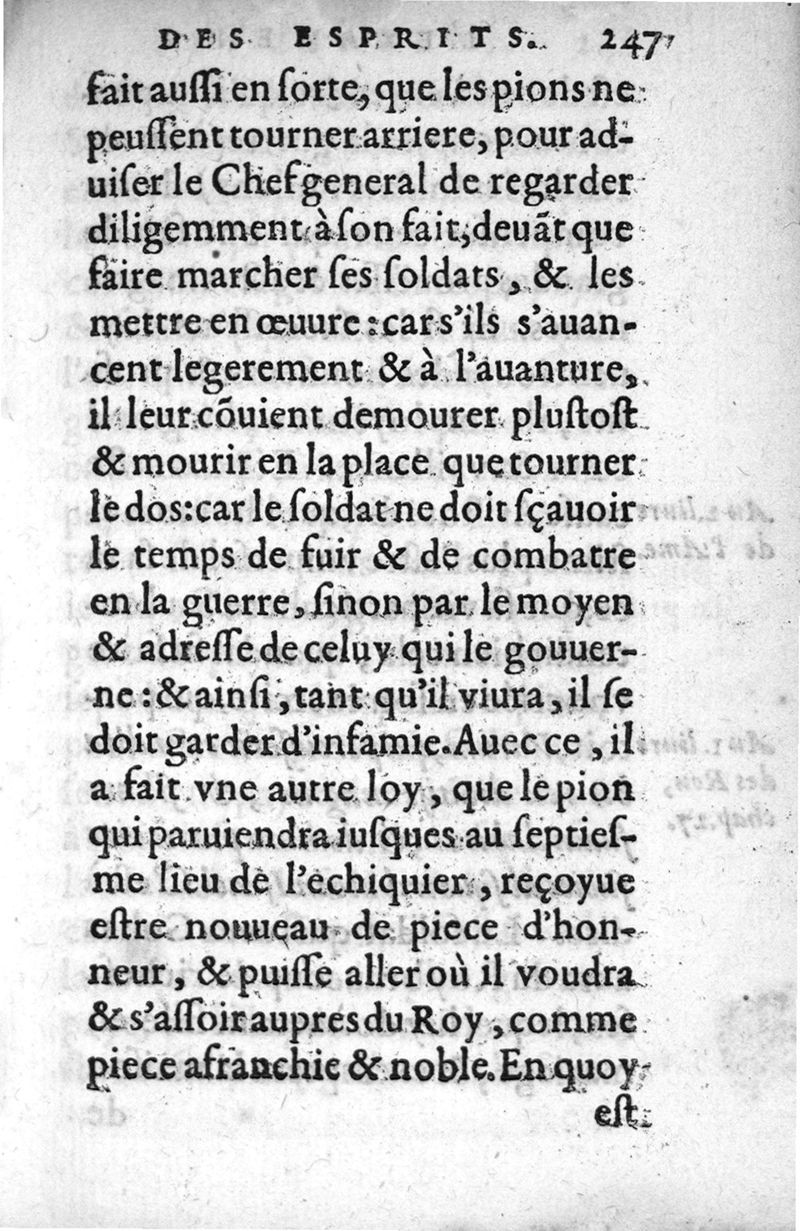 DES ESPRITS. 247
fait auſſi en ſorte, que les pions ne
peuſſent tourner arriere, pour ad-
uiſer le Chef general de regarder
diligemment à ſon fait, deuãt que
faire marcher ſes ſoldats, & les
mettre en œuure : car s'ils s'auan-
cent legerement & à l'auanture,
il leur cõuient demourer pluſtoſt
& mourir en la place que tourner
le dos: car le ſoldat ne doit ſçauoir
le temps de fuir & de combatre
en la guerre, ſinon par le moyen
& adreſſe de celuy qui le gouuer-
ne : & ainſi, tant qu'il viura, il ſe
doit garder d'infamie. Auec ce, il
a fait vne autre loy, que le pion
qui paruiendra iuſques au ſeptieſ-
me lieu de l'echiquier, reçoyue
eſtre nouueau de piece d'hon-
neur, & puiſſe aller où il voudra
& s'aſſoir aupres du Roy, comme
piece afranchie & noble. En quoy
eſt